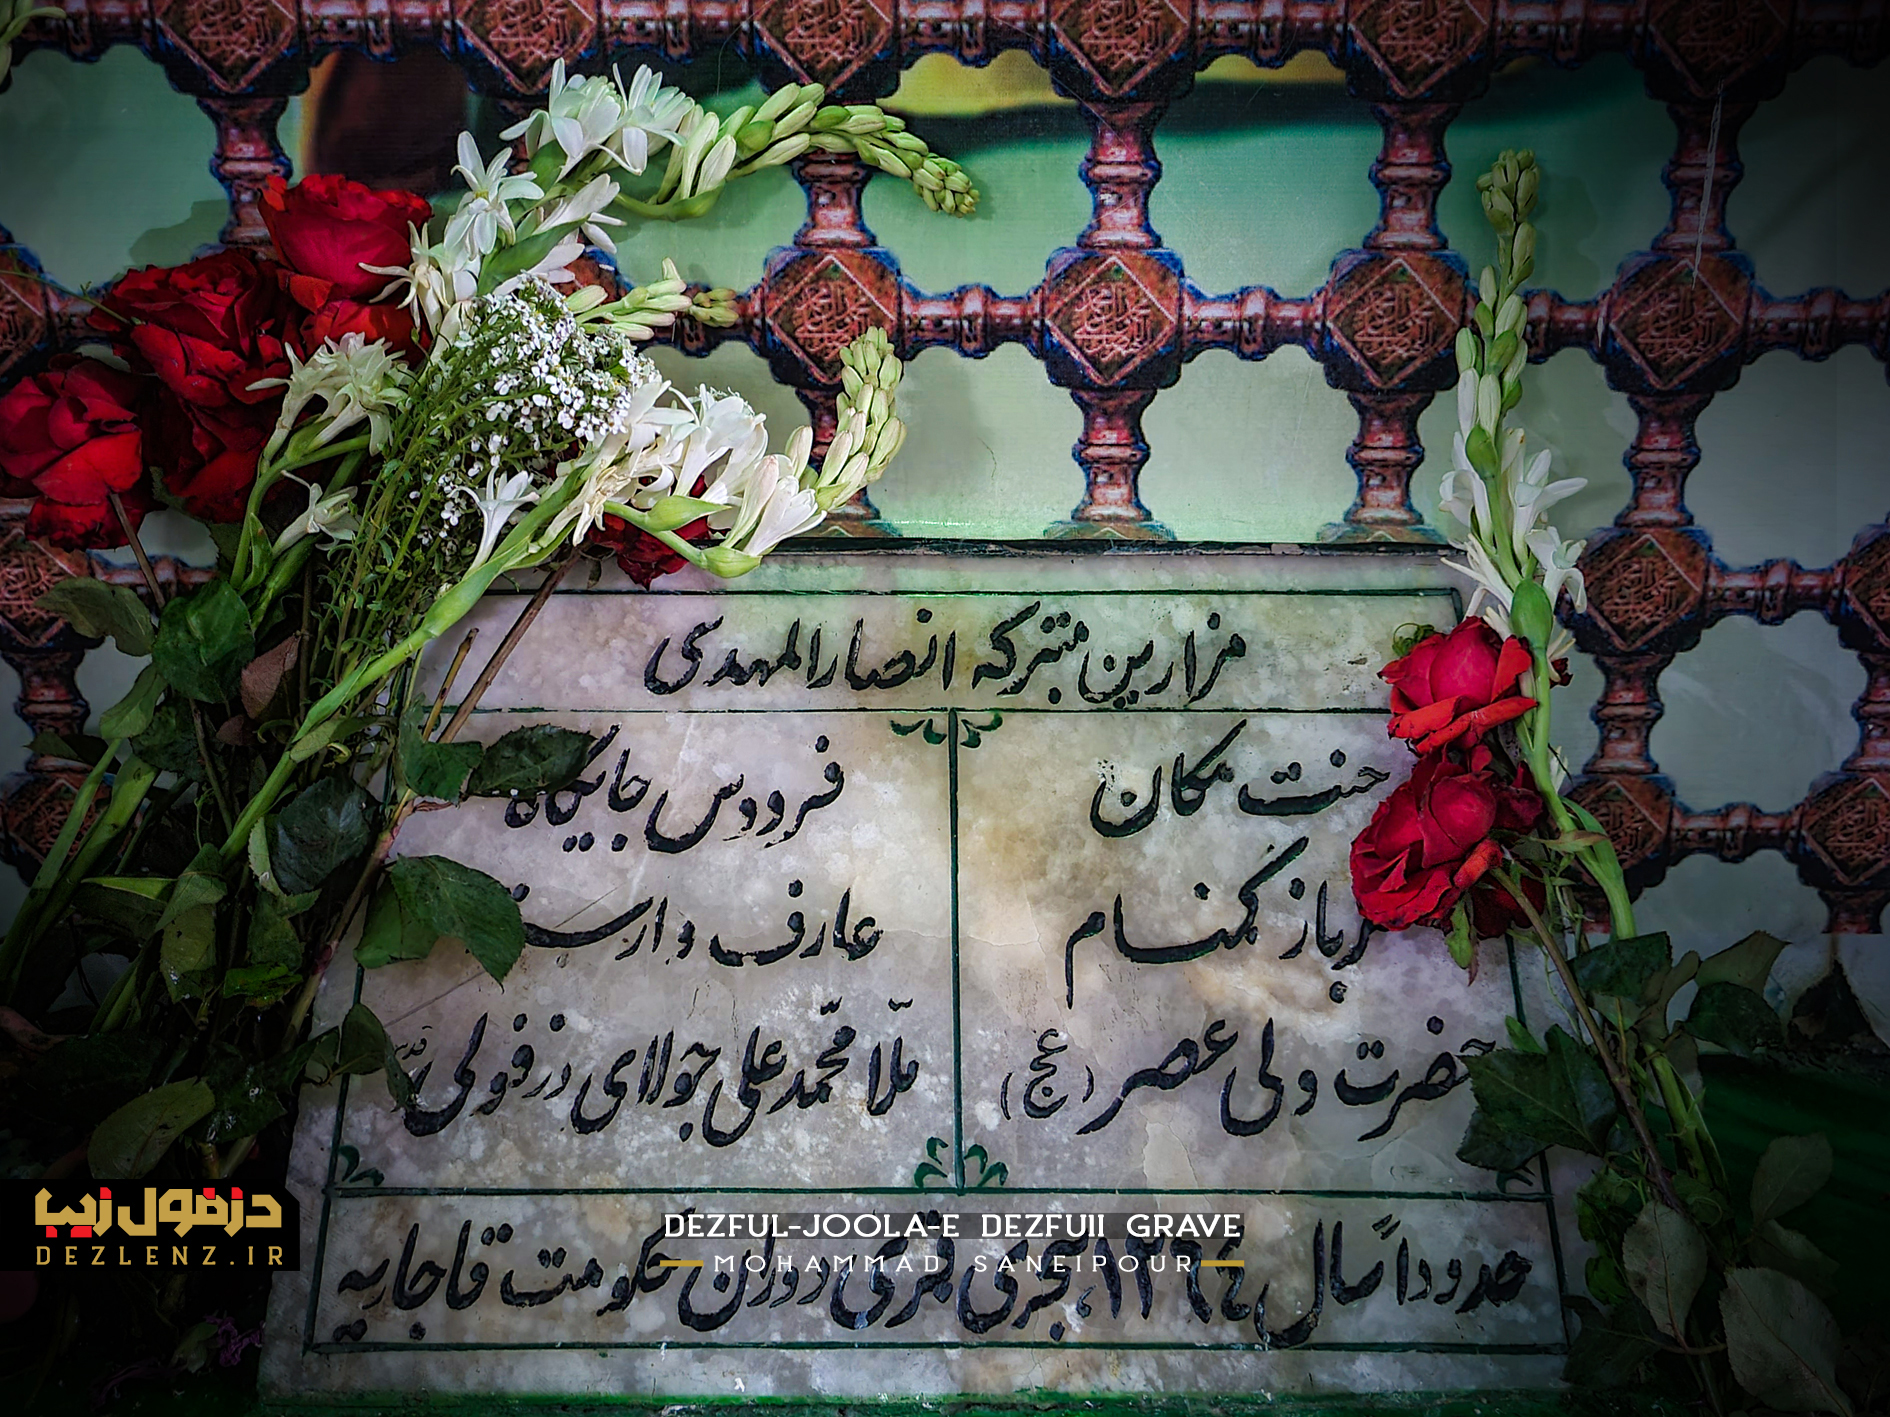 مزارین متبرکه انصارالمهدی
جنت مکان
گمنام
حضرت ولی عصر (عج)
فردوس جایگاه
عارف
ملّا محمّد علی جولای دزفولی
حدوداً سال هجری قمری دوران حکومت قاجاریه
DEZFUL-JOOLA-E DEZFUII GRAVE
MOHAMMAD SANEIPOUR
دزفول زیبا
DEZLENZ.IR